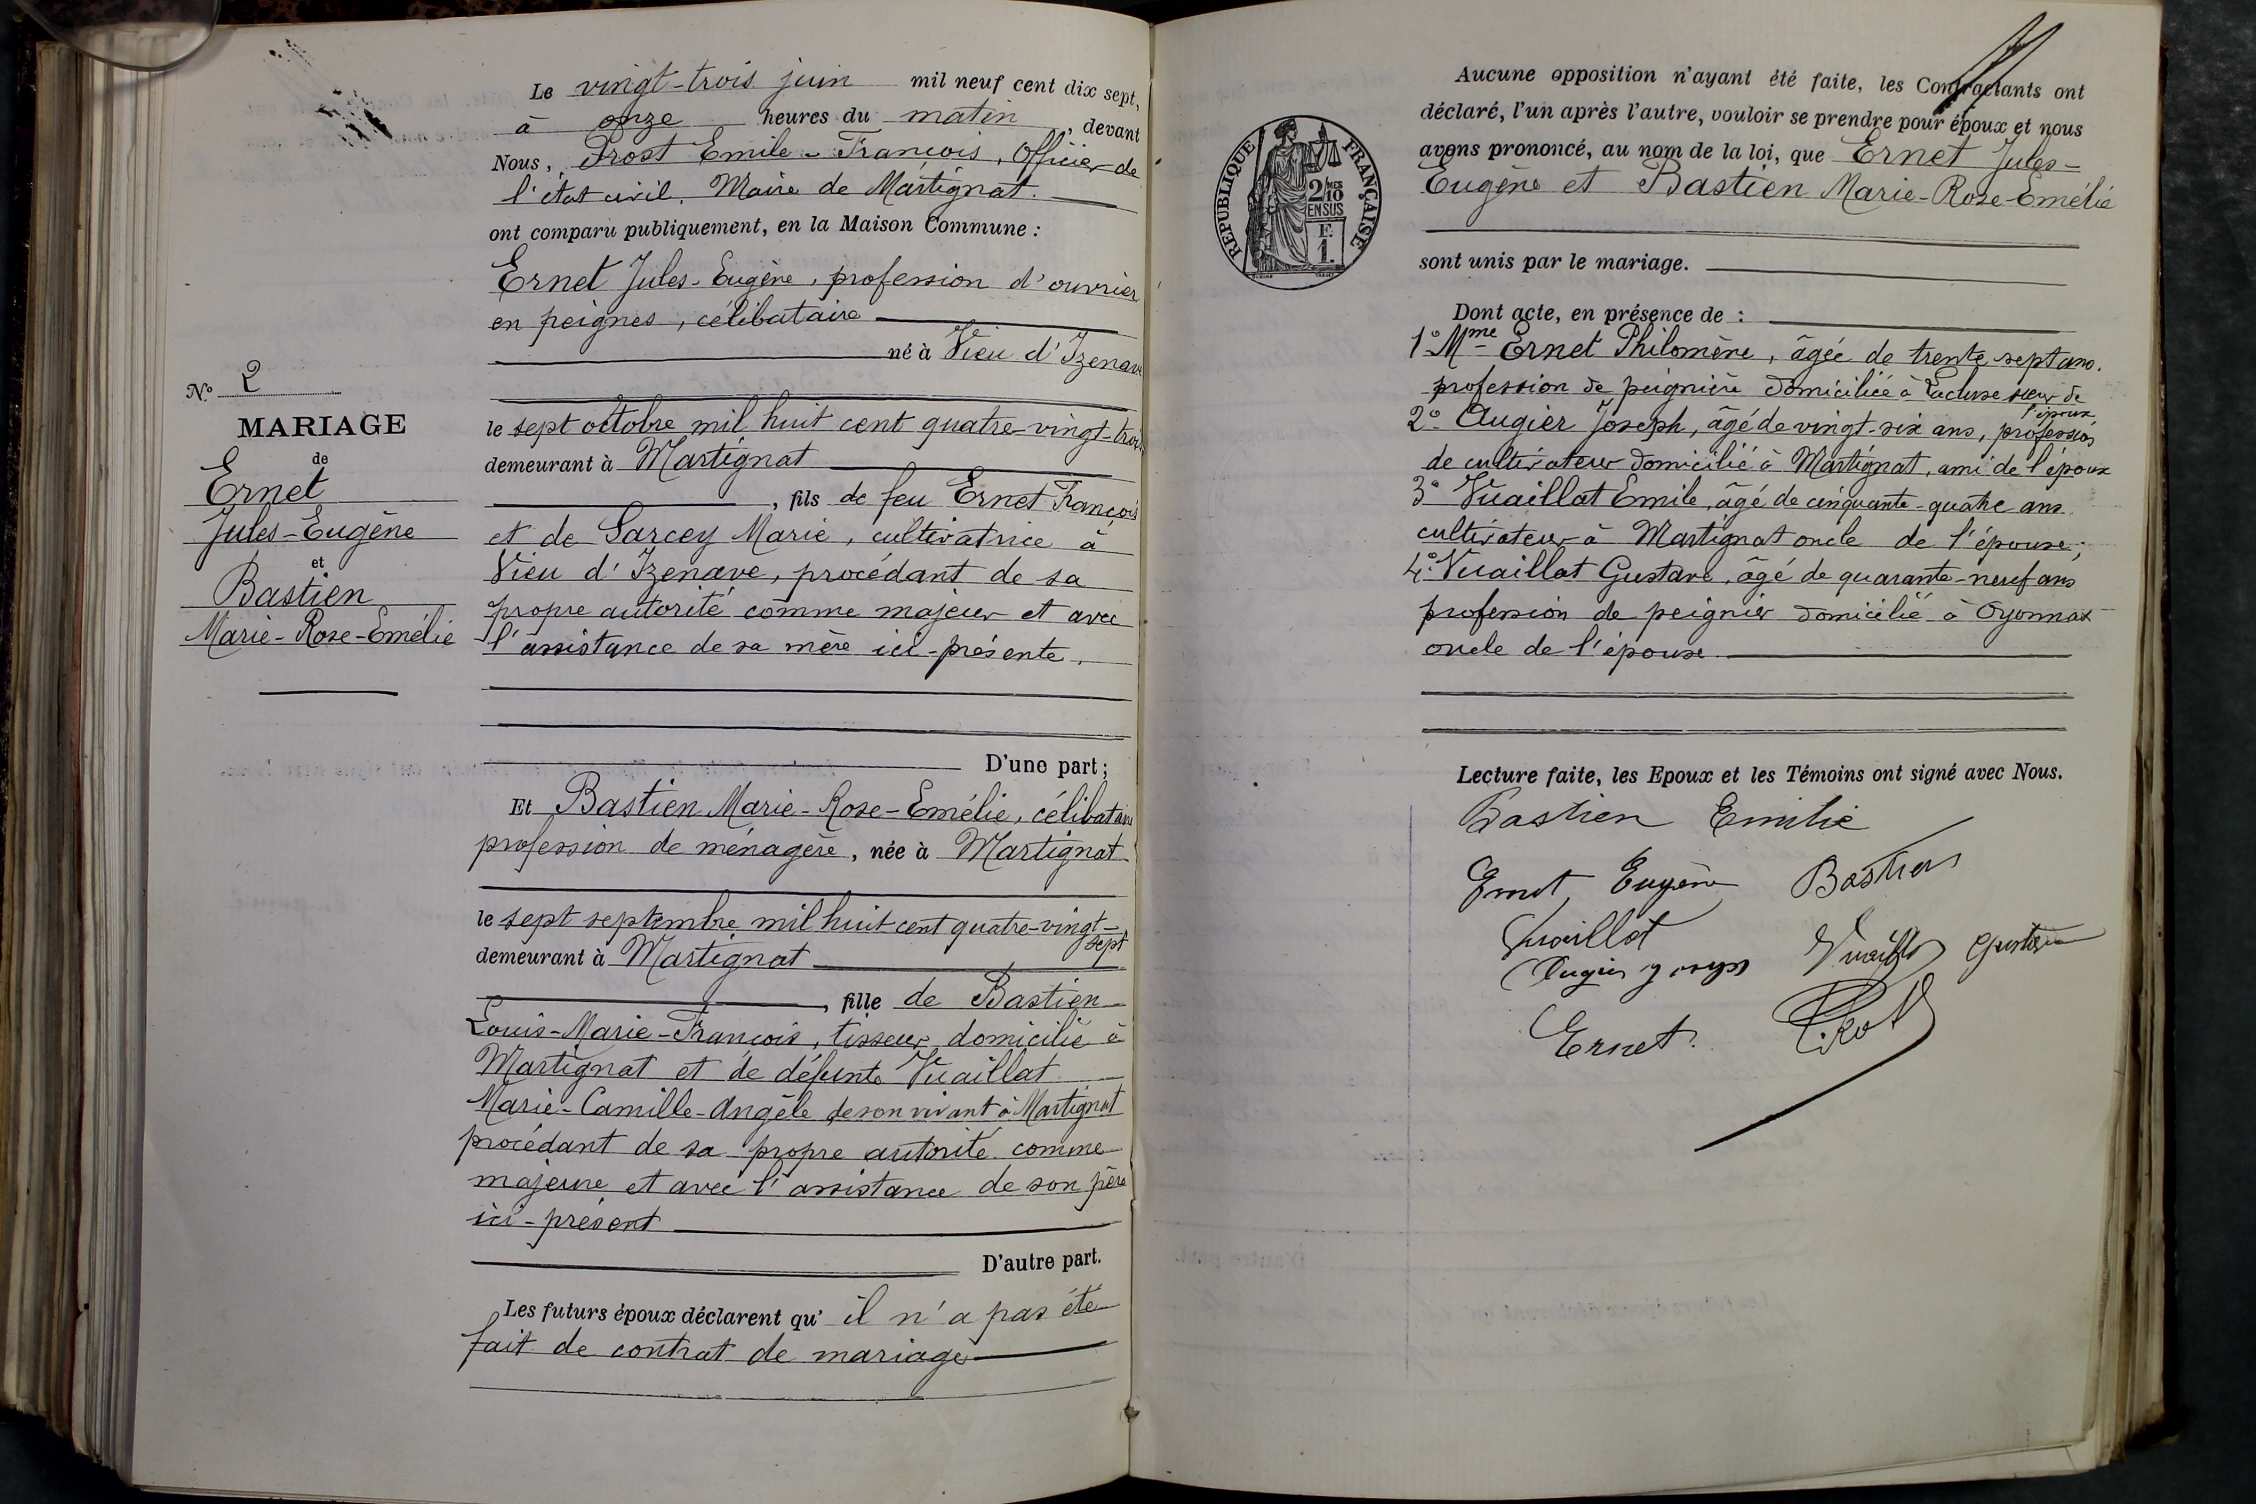 Le vingt-trois juin mil neuf cent dix sept,
à onze heures du matin, devant
Nous, Prost Emile-François, Officier de
l'état civil, Maire de Martignat.
ont comparu publiquement, en la Maison Commune :
Ernet Jules-Eugène, profession d'ouvrier
en peignes, célibataire
né à Vieu d'Izenave
le sept octobre mil huit cent quatre-vingt-trois
demeurant à Martignat
, fils de feu Ernet François
et de Sarcey Marie, cultivatrice à
Vieu d'Izenave, procédant de sa
propre autorité comme majeur et avec
l'assistance de sa mère ici-présente.
D'une part ;
N° 2
MARIAGE
de
Ernet
Jules-Eugène
et
Bastien
Marie-Rose-Emélie
Et Bastien Marie-Rose-Emélie, célibataire
profession de ménagère, née à Martignat
le sept septembre mil huit cent quatre-vingt-
sept
demeurant à Martignat
, fille de Bastien
Louis-Marie-François, tisseur, domicilié à
Martignat et de défunte Vuaillat
Marie-Camille-Angèle, de son vivant à Martignat
procédant de sa propre autorité comme
majeure et avec l'assistance de son père
ici-présent
D'autre part.
Les futurs époux déclarent qu'il n'a pas été
fait de contrat de mariage
Aucune opposition n'ayant été faite, les Contractants ont
déclaré, l'un après l'autre, vouloir se prendre pour époux et nous
avons prononcé, au nom de la loi, que Ernet Jules-
Eugène et Bastien Marie-Rose-Emélie
RÉPUBLIQUE FRANÇAISE
2/10 MES
EN SUS
F.
1.
sont unis par le mariage.
Dont acte, en présence de :
1° Mme Ernet Philomène, âgée de trente sept ans.
profession de peignière domiciliée à Lacluse sœur de
l'époux
2° Augier Joseph, âgé de vingt-six ans, profession
de cultivateur domicilié à Martignat, ami de l'époux
3° Vuaillat Emile, âgé de cinquante-quatre ans
cultivateur à Martignat oncle de l'épouse ;
4° Vuaillat Gustave, âgé de quarante-neuf ans
profession de peignier domicilié à Oyonnax
oncle de l'épouse
Lecture faite, les Epoux et les Témoins ont signé avec Nous.
Bastien Emilie
Ernet Eugène Bastien
Vuaillat
Augier Joseph Vuaillat Gustave
Ernet